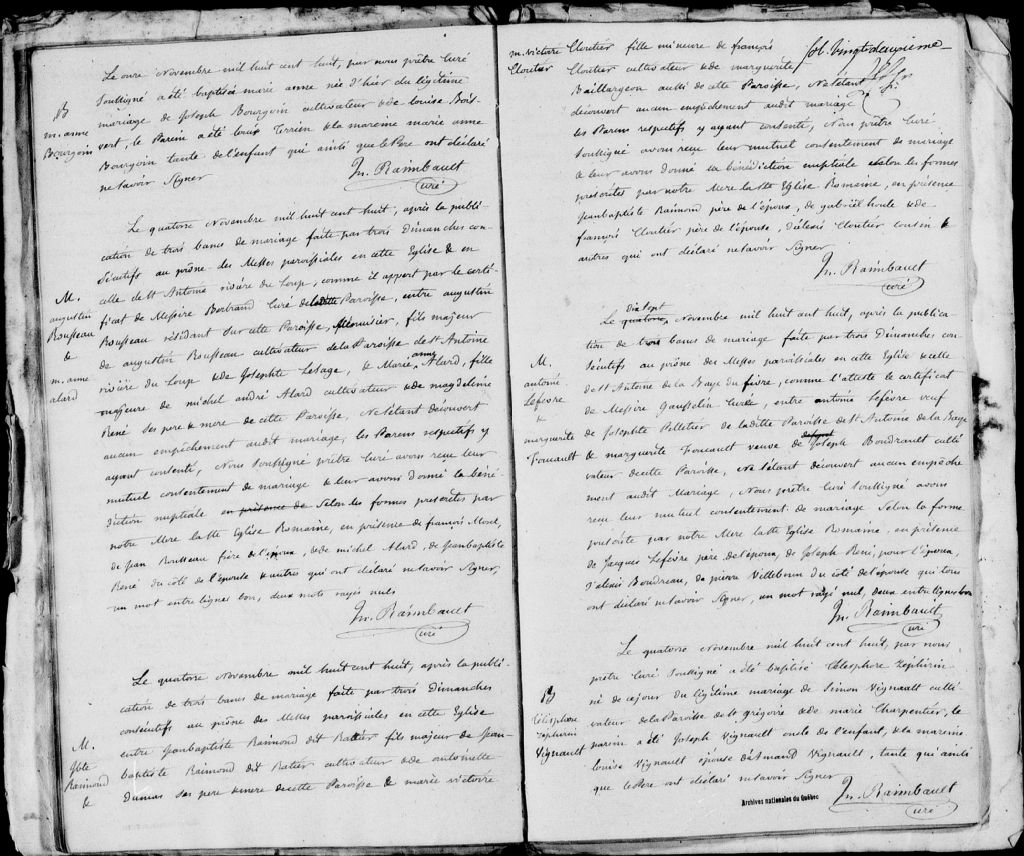 Le onze Novembre mil huit cent huit, par nous prêtre Curé
Soussigné a été baptisée marie anne née d'hier du légitime
B
m. anne
Bourgoin
mariage de Joseph Bourgoin cultivateur & de Louise Bois-
vert, le Parein a été Louis Terrien & la mareine marie anne
Bourgoin tante de l'enfant qui ainsi que le Pere ont déclaré
ne savoir Signer
Jn. Raimbault
curé
Le quatorze Novembre mil huit cent huit, après la publi-
cation de trois bancs de mariage faite par trois Dimanches con-
sécutifs au prône des Messes paroissiales en cette Eglise & en
celle de St Antoine rivière du Loup, comme il appert par le certi-
M.
augustin
Rousseau
&
m. anne
alard
ficat de Messire Bertrand Curé de laditte Paroisse, entre augustin
Rousseau résidant sur cette Paroisse, Menuisier, fils majeur
de augustin Rousseau cultivateur de la Paroisse de St Antoine
rivière du Loup & de Josephte Lesage, & Marie anne Alard, fille
majeure de michel andré Alard cultivateur & de magdeleine
René Ses pere & mere de cette Paroisse, Ne S'étant découvert
aucun empêchement audit mariage, les Parens respectifs y
ayant consenti, Nous Soussigné prêtre Curé avons reçu leur
mutuel consentement de mariage & leur avons donné la béné-
diction nuptiale en présence de Selon les formes prescrites par
notre Mere la Ste Eglise Romaine, en présence de françois Morel,
de jean Rousseau frère de l'époux, & de michel Alard, de Jeanbaptiste
René du côté de l'épouse & autres qui ont déclaré ne savoir Signer,
un mot entre ligner bon, deux mots rayés nuls
Jn. Raimbault
curé
Le quatorze Novembre mil huit cent huit, après la publi-
cation de trois bancs de mariage faite par trois Dimanches
consécutifs au prône des Messes paroissiales en cette Eglise
M.
Jbte
Raimond
&
entre Jeanbaptiste Raimond dit Ratier fils majeur de Jean-
baptiste Raimond dit Ratier cultivateur & de antoinette
Dumas Ses pere & mere de cette Paroisse & marie victoire
fol. vingt deuxieme
m. victoire
Cloutier
Cloutier fille mineure de françois
Cloutier cultivateur & de marguerite
Baillargeon aussi de cette Paroisse, Ne S'étant
découvert aucun empêchement audit mariage
les Parens respectifs y ayant consenti, Nous prêtre Curé
Soussigné avons reçu leur mutuel consentement de mariage
& leur avons donné la bénédiction nuptiale Selon les formes
prescrites par notre Mere la Ste Eglise Romaine, en présence
Jeanbaptiste Raimond père de l'époux, de gabriel houle & de
françois Cloutier père de l'épouse, d'alexis Cloutier cousin &
autres qui ont déclaré ne savoir Signer
Jn. Raimbault
curé
Dix Sept
Le quatorze Novembre mil huit cent huit, après la publica-
tion de trois bancs de mariage faite par trois Dimanches con
M.
antoine
Lefevre
&
marguerite
Foucault
sécutifs au prône des Messes paroissiales en cette Eglise & celle
de St Antoine de la Baye du febvre, comme l'atteste le certificat
de Messire Gausselin Curé, entre antoine Lefevre veuf
de Josephte Pelletier de laditte Paroisse de St Antoine de la Baye
& marguerite Foucault veuve de Joseph Boudrault culti
vateur de cette Paroisse, Ne S'étant découvert aucun empêche
ment audit Mariage, Nous prêtre Curé Soussigné avons
reçu leur mutuel consentement de mariage Selon la forme
prescrite par notre Mere la Ste Eglise Romaine, en présence
de Jacques Lefevre père de l'époux, de Joseph René, pour l'époux,
d'alexis Boudreau, de pierre Villebrun du côté de l'épouse qui tous
ont déclaré ne savoir Signer, un mot rayé nul, deux entre lignes bons
Jn. Raimbault
curé
Le quatorze Novembre mil huit cent huit, par nous
prêtre Curé Soussigné a été baptisé Télesphore Zéphirin
B
Télesphore
Zephirin
Vignault
né de ce jour du légitime mariage de Simon Vignault culti
vateur de la Paroisse de St grégoire & de marie Charpentier, le
parein a été Joseph Vignault oncle de l'enfant, & la mareine
Louise Vignault épouse d'Amand Vignault, tante qui ainsi
que le Pere ont déclaré ne savoir Signer
Jn. Raimbault
curé
Archives nationales du Québec